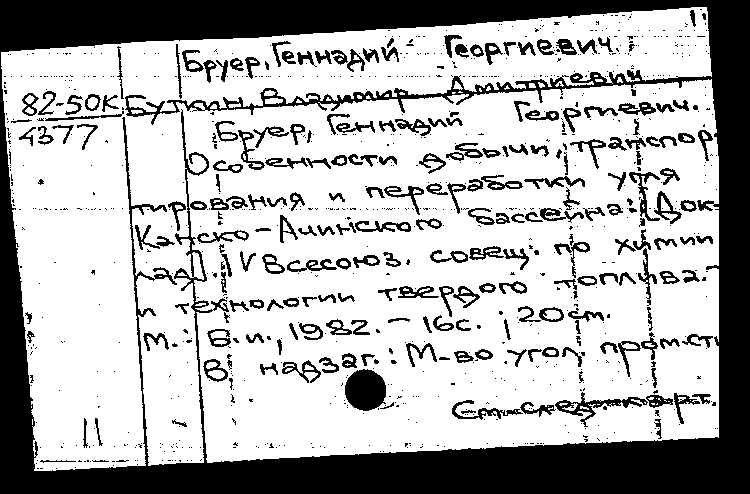 11
Бруер, Геннадий Георгиевич
82-50К Буткин, Владимир Дмитриевич
4377 Бруер, Геннадий Георгиевич.
Особенности добычи, транспор-
тирования и переработки угля
Канско-Ачинского бассейна: [Док-
лад]. IV Всесоюз. совещ. по химии
и технологии твердого топлива.-
М.: Б.и., 1982. - 16с. ; 20см.
В надзаг.: М-во угол. пром-сти
См. след. карт.
11